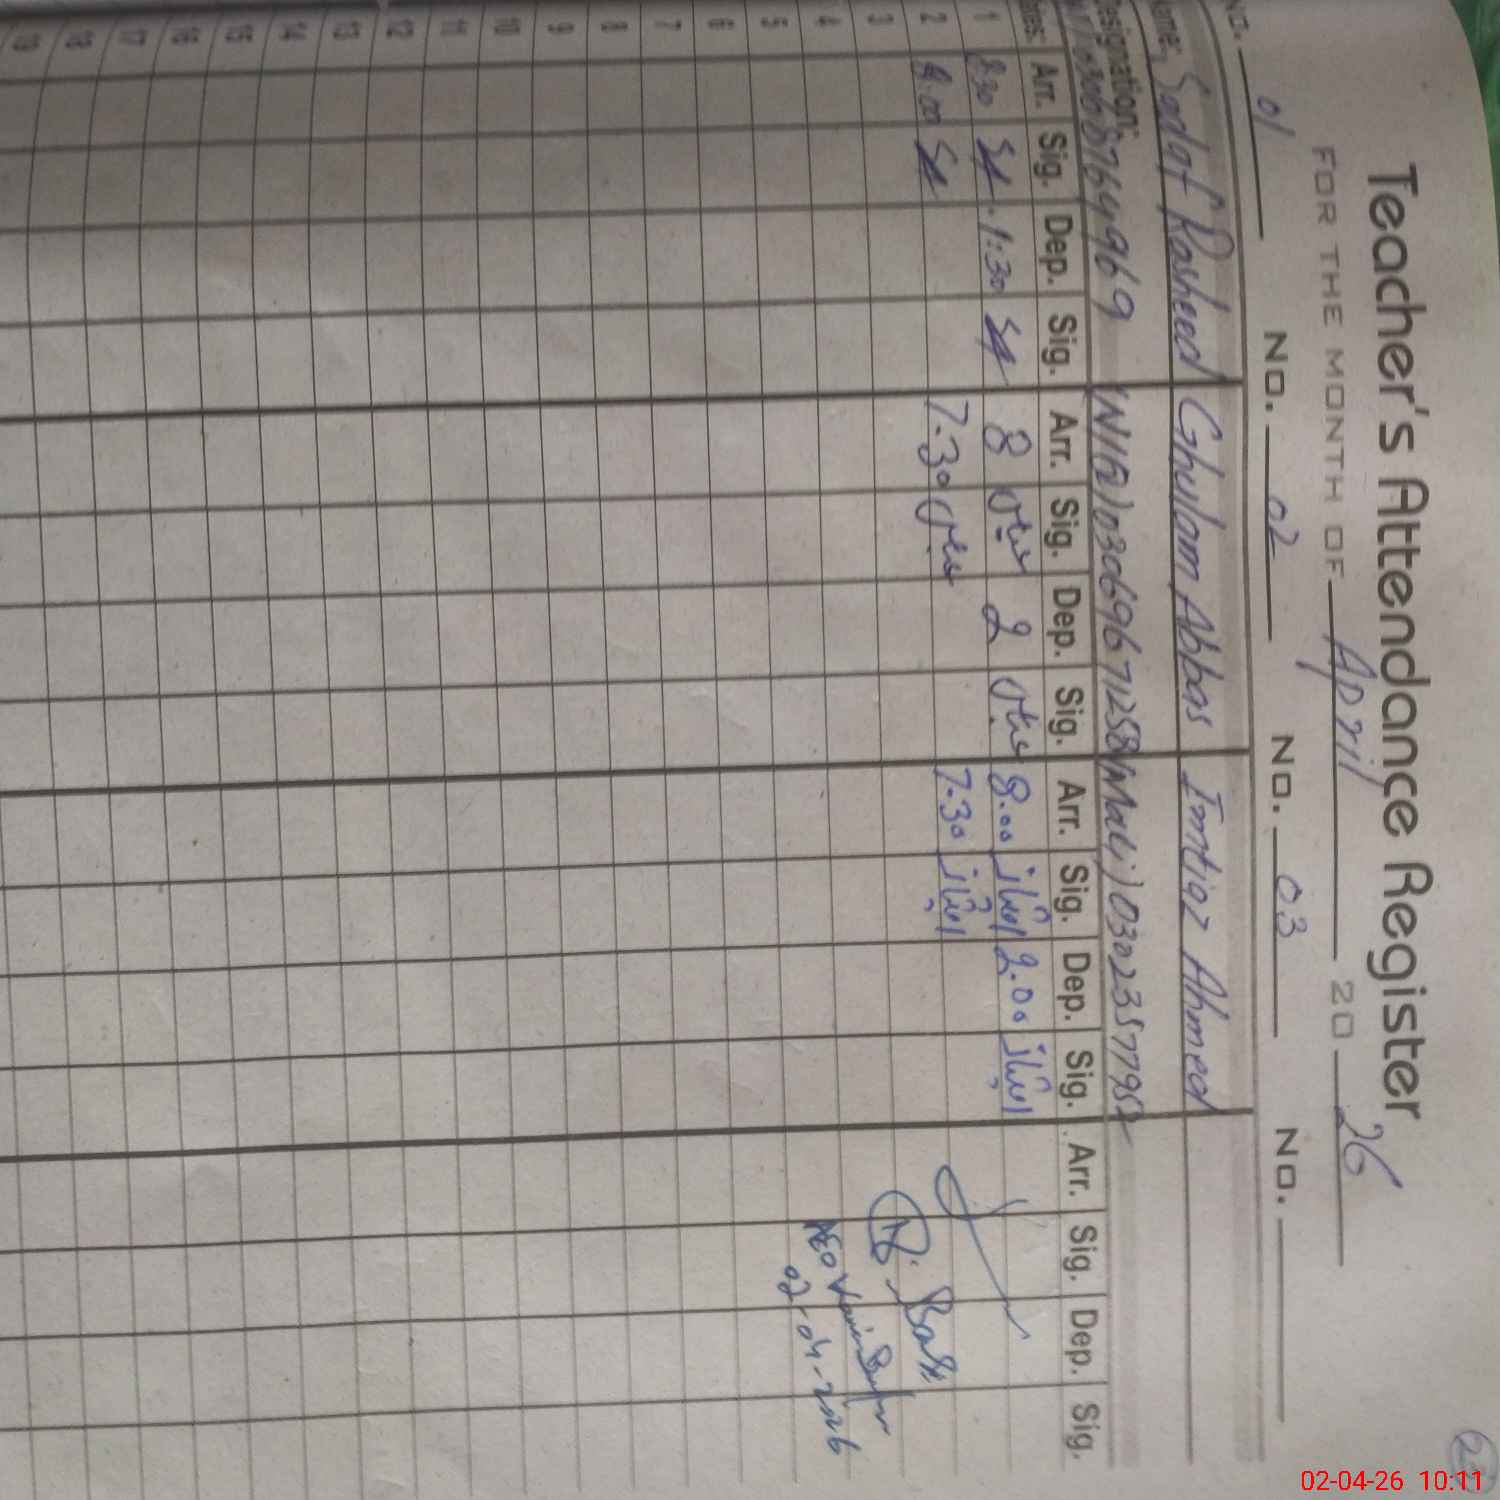 Teacher's Attendance Register
FOR THE MONTH OF April 20 26
No. 01 No. 02 No. 03 No.
Name: Sadaf Rasheed Ghulam Abbas Imtiaz Ahmed
Designation: 03068764969 (N/Q) 03069671258 (Mali) 0302357795
Dates: Arr. Sig. Dep. Sig. Arr. Sig. Dep. Sig. Arr. Sig. Dep. Sig. Arr. Sig. Dep. Sig.
1 8:30 SA 1:30 SA 8 عباس 2 عباس 8.00 امتیاز 2.00 امتیاز
2 SA 7.30 عباس 7.30 امتیاز
3
4
5
6
7
8
9
10
11
12
13
14
15
16
17
18
19
AEO
02-04-2026
02-04-26 10:11